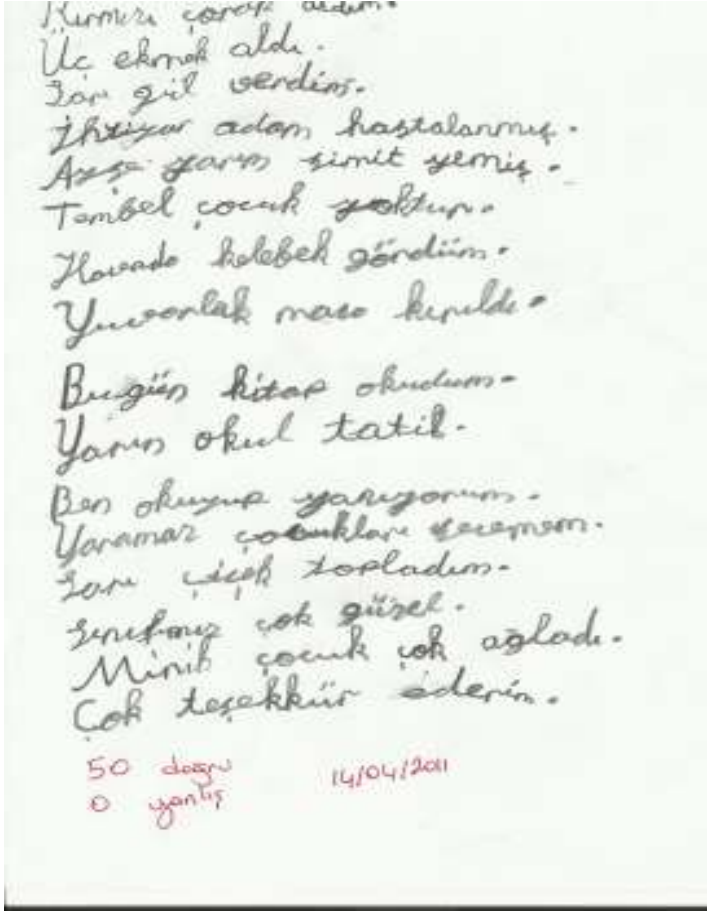 Kırmızı çorap aldım.
Üç ekmek aldı.
Sarı gül verdim.
İhtiyar adam hastalanmış.
Ayşe yarım simit yemiş.
Tembel çocuk yoktur.
Havada kelebek gördüm.
Yuvarlak masa kırıldı.
Bugün kitap okudum.
Yarın okul tatil.
Ben okuyup yazıyorum.
Yaramaz çocukları sevemem.
Sarı çiçek topladım.
Sınıfımız çok güzel.
Minik çocuk çok ağladı.
Çok teşekkür ederim.
50 doğru 14/04/2011
0 yanlış